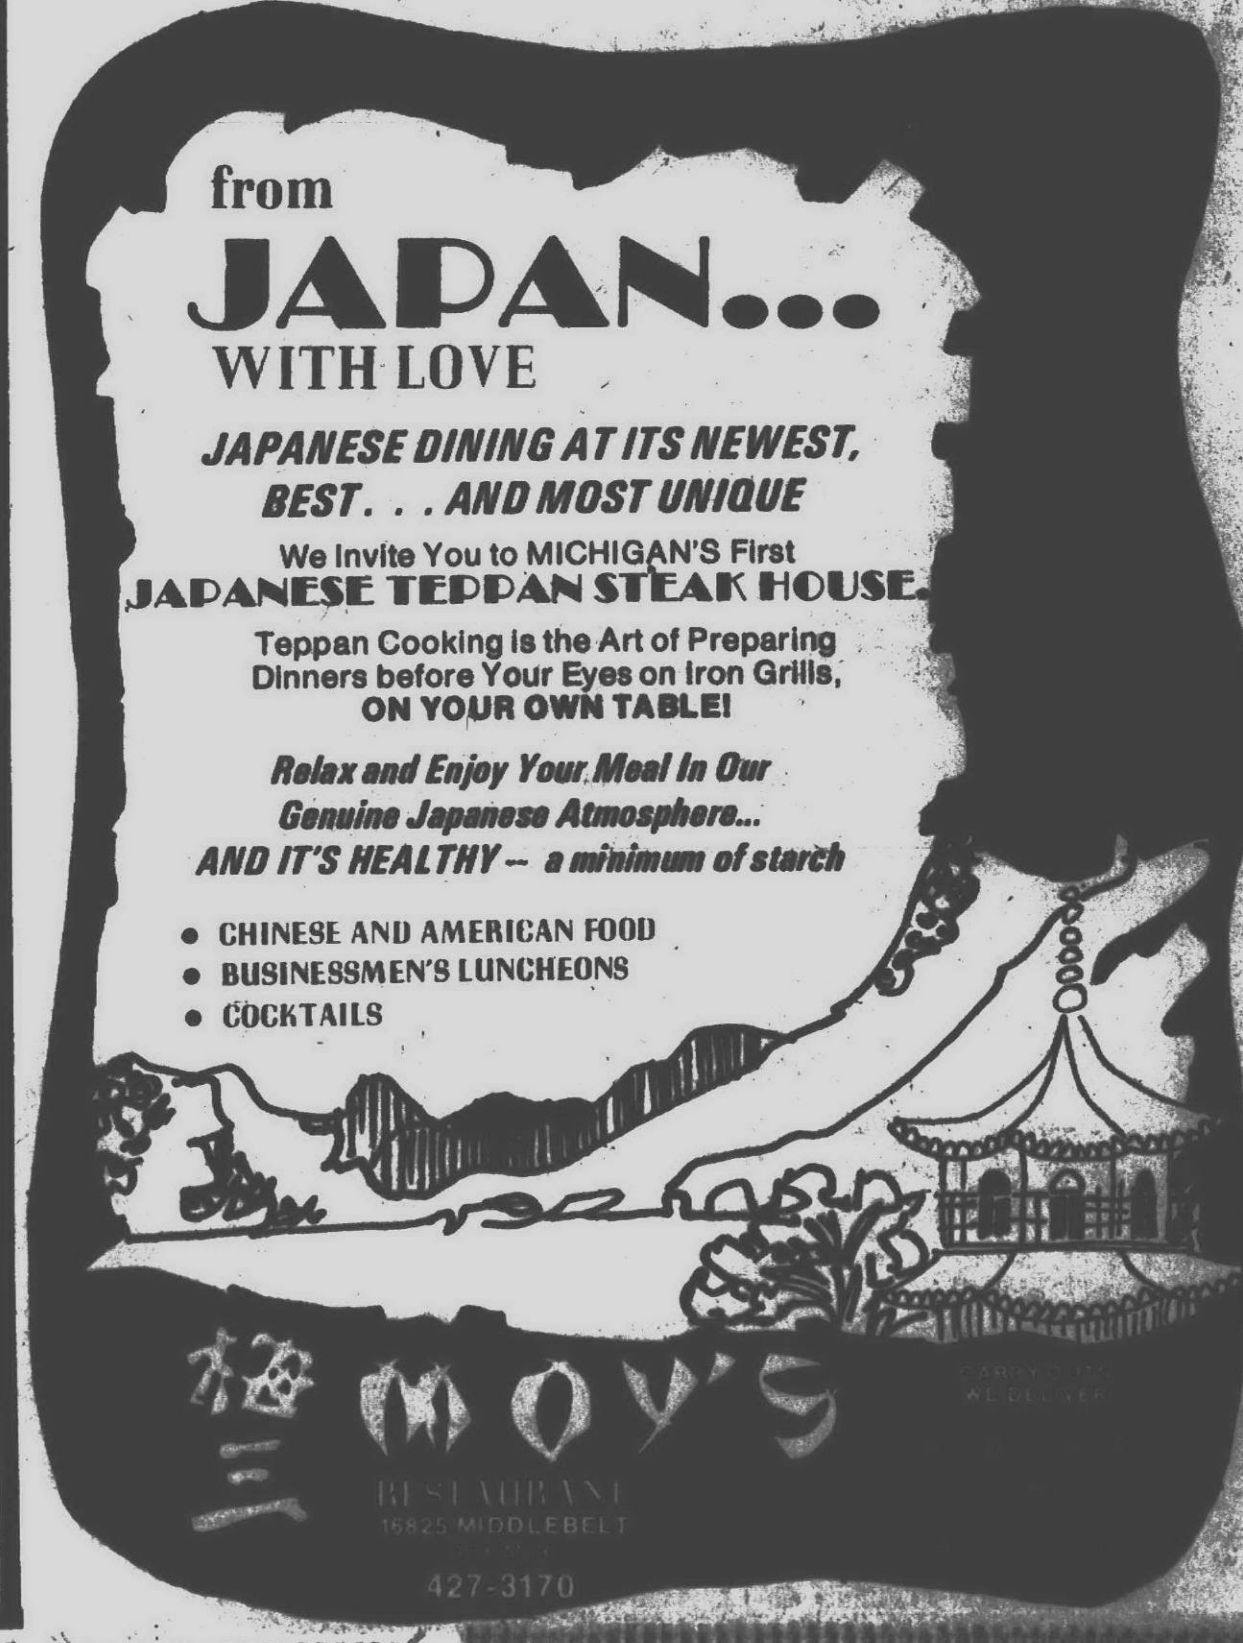 from
JAPAN...
WITH LOVE
JAPANESE DINING AT ITS NEWEST,
BEST. . . AND MOST UNIQUE
We Invite You to MICHIGAN'S First
JAPANESE TEPPAN STEAK HOUSE.
Teppan Cooking is the Art of Preparing
Dinners before Your Eyes on Iron Grills,
ON YOUR OWN TABLE!
Relax and Enjoy Your Meal In Our
Genuine Japanese Atmosphere...
AND IT'S HEALTHY – a minimum of starch
• CHINESE AND AMERICAN FOOD
• BUSINESSMEN'S LUNCHEONS
• COCKTAILS
三
MOY'S
CARRY OUTS
WE DELIVER
RESTAURANT
16825 MIDDLEBELT
427-3170